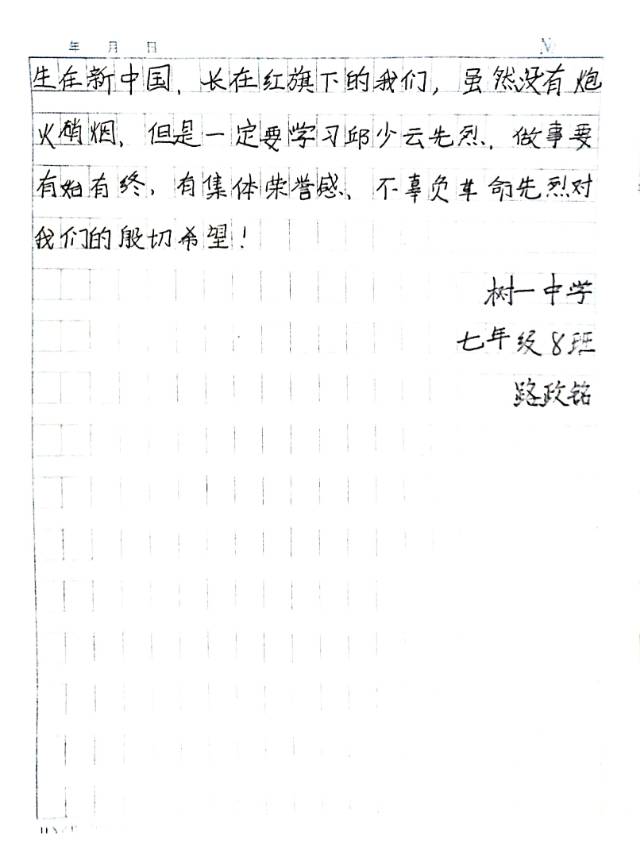 年 月 日
生在新中国，长在红旗下的我们，虽然没有炮
火硝烟，但是一定要学习邱少云先烈、做事要
有始有终，有集体荣誉感、不辜负革命先烈对
我们的殷切希望！
树一中学
七年级8班
路政铭